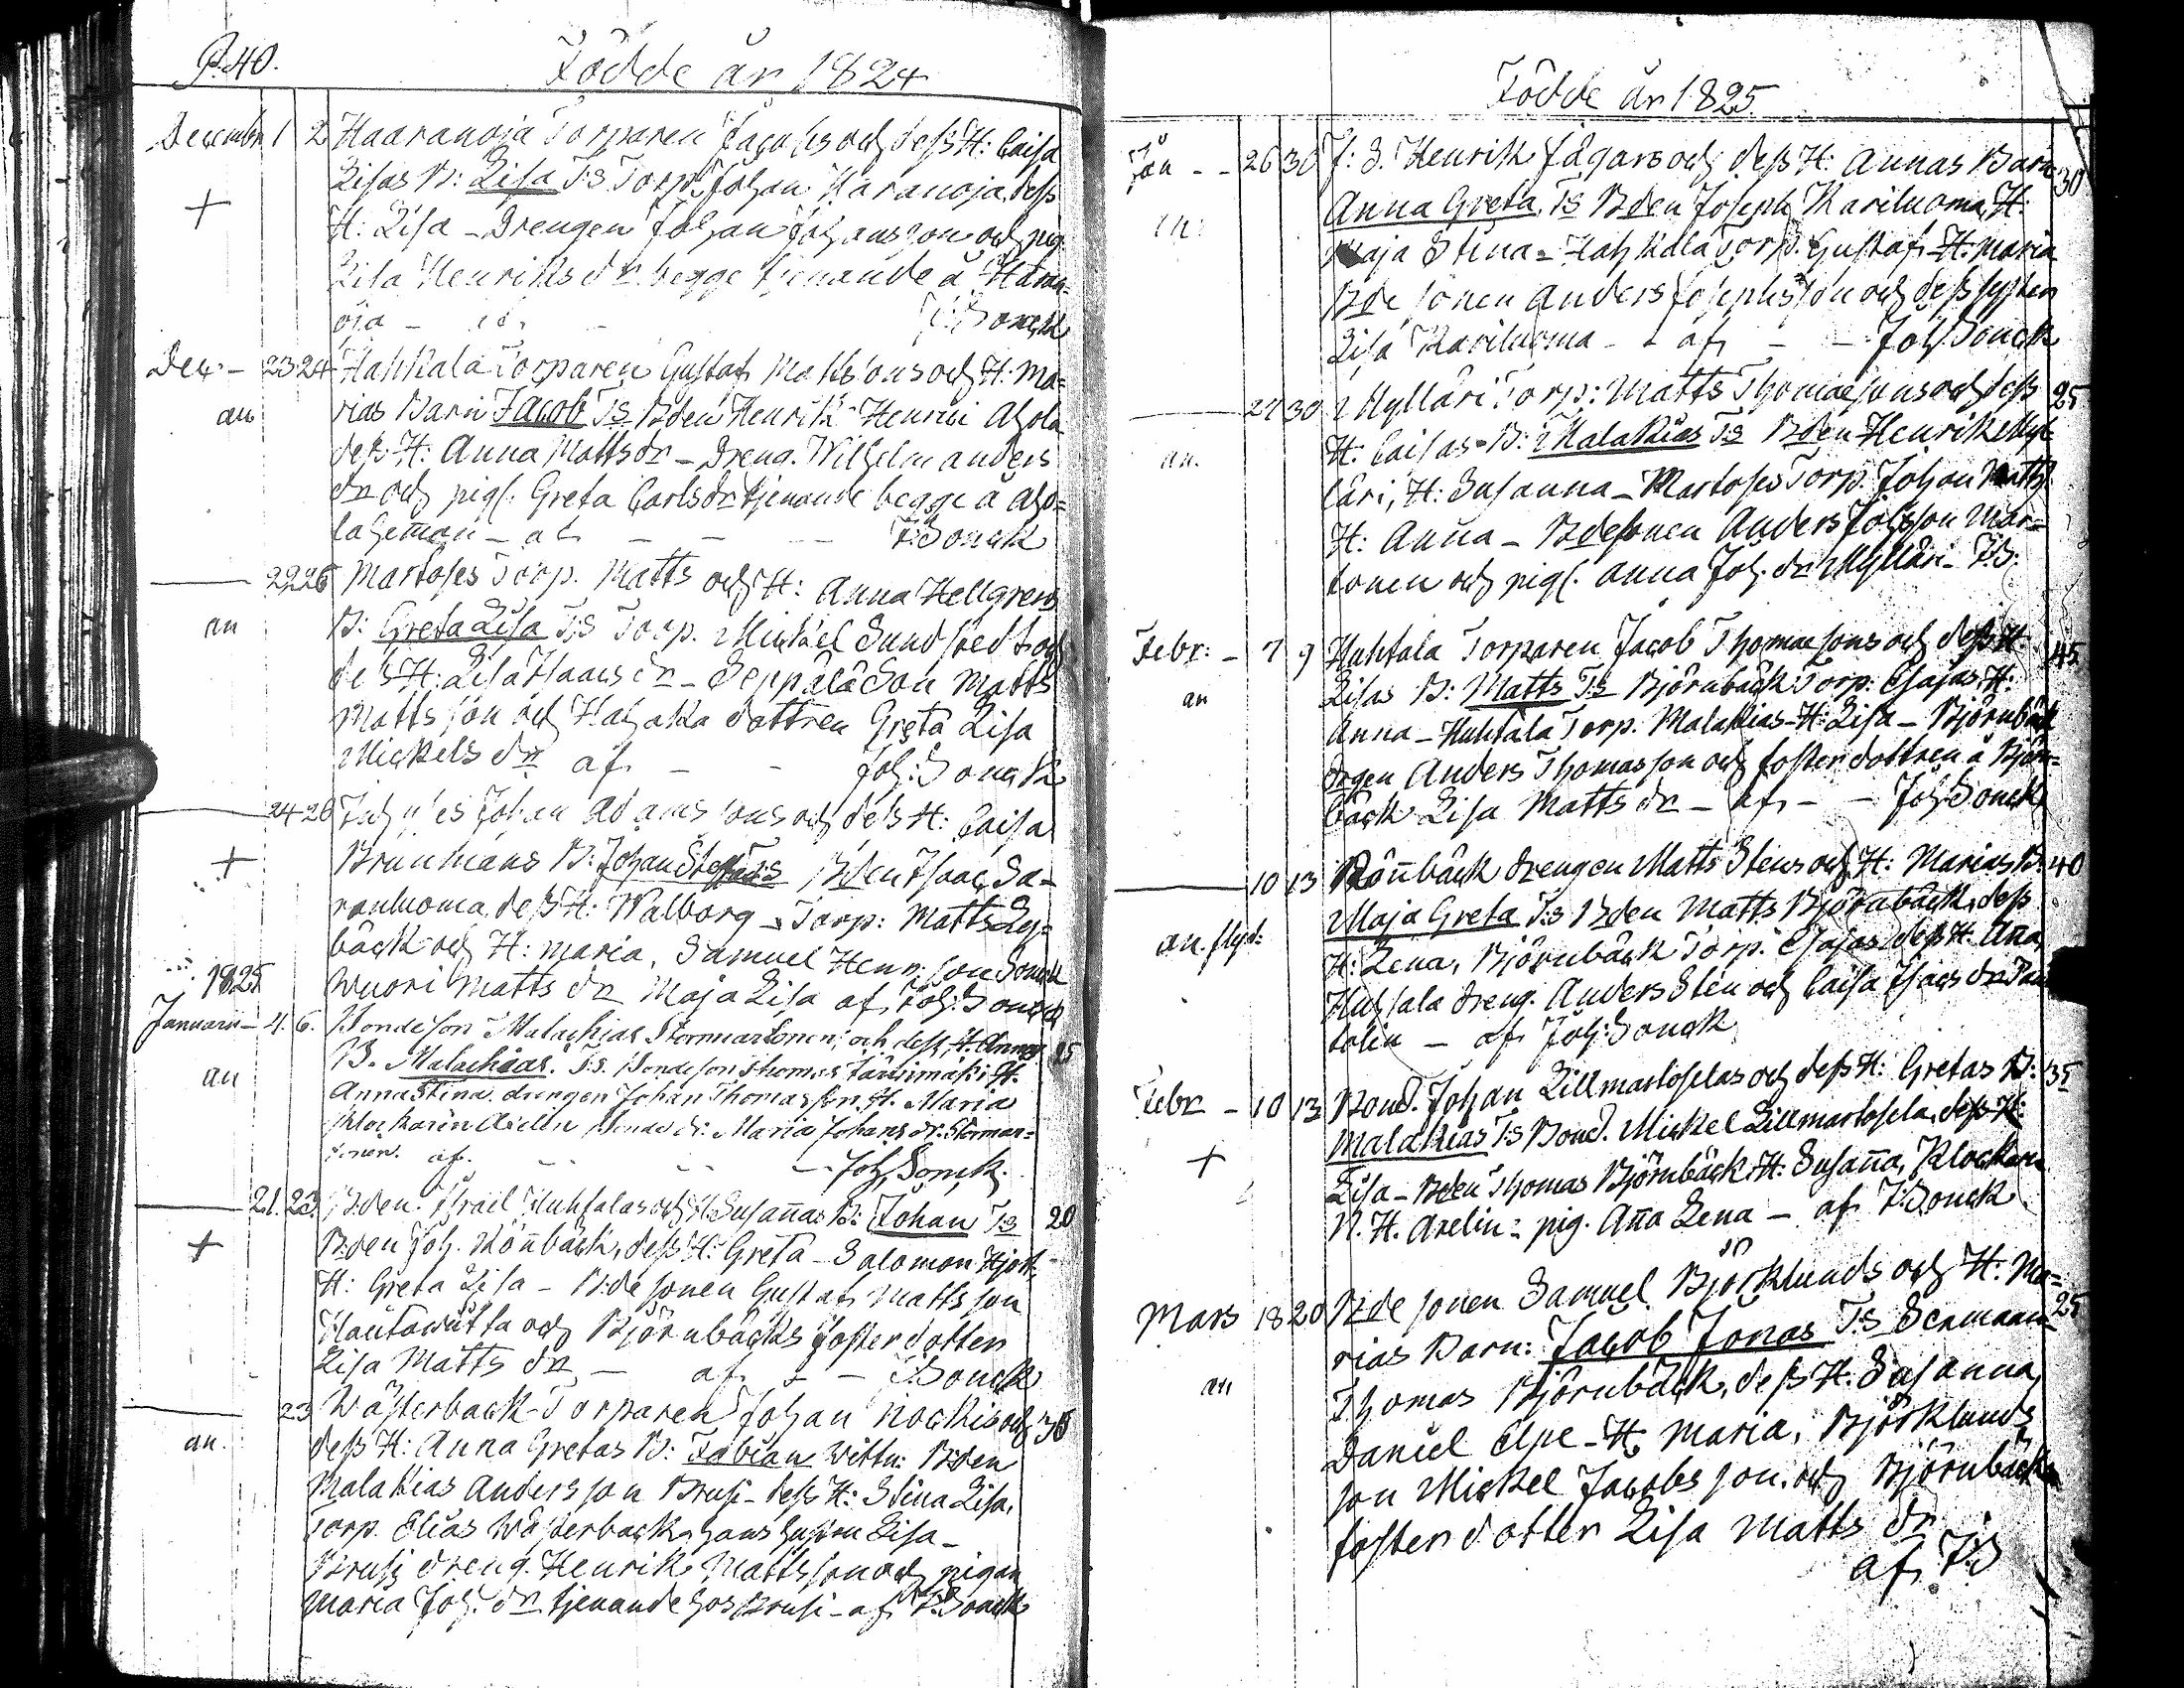 P. 40.
Födde år 1824
Decembr 1 2 Haaranoja Torparen Jacobs och dess H: Caisa
Lisas B: Lisa T:s Torp. Johan Haranoja, dess
+
H: Lisa – Drengen Johan Johansson och pig.
Lisa Henriks dr begge tjenande å Haran=
oja – J: Sonck
Dec. – 23 24 Hahkala Torparen Gustaf Mattsons och H: Ma=
an
rias Barn Jacob T:s Bden Henrik Henrici Ahola
dess H: Anna Matts dr – Dreng. Wilhelm Anders
dr och pig. Greta Carls dr tjenande begge å Aho=
la hemman – af – – J: Sonck
22 26 Martoses Torp. Matts och H: Anna Hellgrens
an
B: Greta Lisa T:s Torp. Mickel Sundstedt och
dess H: Lisa Isaacs dr – Seppälä Son Matts
Mattsson och dottren Greta Lisa
Mickels dr af – – Joh: Sonck
24 26 Johan Adamsons och dess H: Caisa
+
Brunmans B: Johan T:s Bden Isaac Sa=
ranluoma, dess H: Walborg – Torp: Matts Ly=
bäck och H: Maria, Samuel Henr: son Sonck
wuori Matts dr Maja Lisa af Joh: Sonck
1825
Januari – 4. 6. Bondeson Malachias Stormartonen, och dess H. Annas 25
an
B. Malachias. T.s. Bondeson Thomas H.
Anna Stina. drengen Johan Thomasson, H. Maria
Klockaren dr. Maria Johans dr. Stormar=
tonen. af. – – – Joh. Sonck.
21. 23. Bden: Israel Huhtalas och H: Susannas B: Johan T:s 20
+
Bden Joh. Rönnbäck, dess H: Greta – Salomon Hjort,
H: Greta Lisa – B:de sonen Gustaf Mattsson
Hautawiita och Björnbäcks fosterdotter
Lisa Matts dr – af – – J: Sonck
23 Wästerback Torparen Johan Nockis och 30
an.
dess H: Anna Gretas B: Fabian Wittn: Bden
Malakias Andersson Brusi – dess H: Stina Lisa,
Torp. Elias Wästerback, hans hustru Lisa –
Brusi dreng. Henrik Mattsson och pigan
Maria Joh. dr tjenande hos Brusi – af J: Sonck
Födde år 1825
Jan – – 26 30 J: S. Henrik Jägars och dess H: Annas Barn 30
Anna Greta, T:s Bden Joseph Kariluoma, H:
Maja Stina – Hahkala Torp. Gustaf – H: Maria
Bde sonen Anders Josephsson och dess syster
Lisa Kariluoma – – af – – Joh: Sonck
27 30 Mylläri Torp: Matts Thomaesons och dess 25
an.
H: Caisas B: Malakias T:s Bden Henrik Myl=
läri, H: Susanna – Martoses Torp. Johan Matts
H: Anna – Bdesonen Anders Johsson Mar=
tonen och pig. Anna Joh. dr Mylläri – J: S:
Febr: – 7 9 Huhtala Torparen Jacob Thomaesons och dess H: 45
an
Lisas B: Matts T:s Björnbäck Torp: Esajas, H:
Anna – Huhtala Torp. Malakias – H: Lisa – Björnbäck
drgen Anders Thomasson och fosterdottren å Björn=
bäck Lisa Matts dr – af – – Joh: Sonck
10 13 Rönnbäck drengen Matts Stens och H: Marias B: 40
Maja Greta T:s Bden Matts Björnbäck, dess
an. flyt:
H: Lena, Björnbäck Torp. Esajas dess H. Ana,
Huhtala dreng. Anders Sten och Caisa Isacs dr
– af Joh: Sonck
Febr – 10 13 Bond. Johan Lillmartoselas och dess H: Gretas B: 35
+
Malakias T:s Bond. Mickel Lillmartosela, dess H:
Lisa – Bden Thomas Björnbäck H: Susanna, Klockaren
N. H. Axelin – pig. Anna Lena – af J: Sonck
Mars 18 20 Bde sonen Samuel Björklunds och H: Ma= 25
rias Barn: Jacob Jonas T:s Sexmann
an
Thomas Björnbäck, dess H. Susanna,
Daniel Elpe – H: Maria, Björklunds
son Mickel Jacobsson, och Björnbäcks
fosterdotter Lisa Matts dr
af J: S